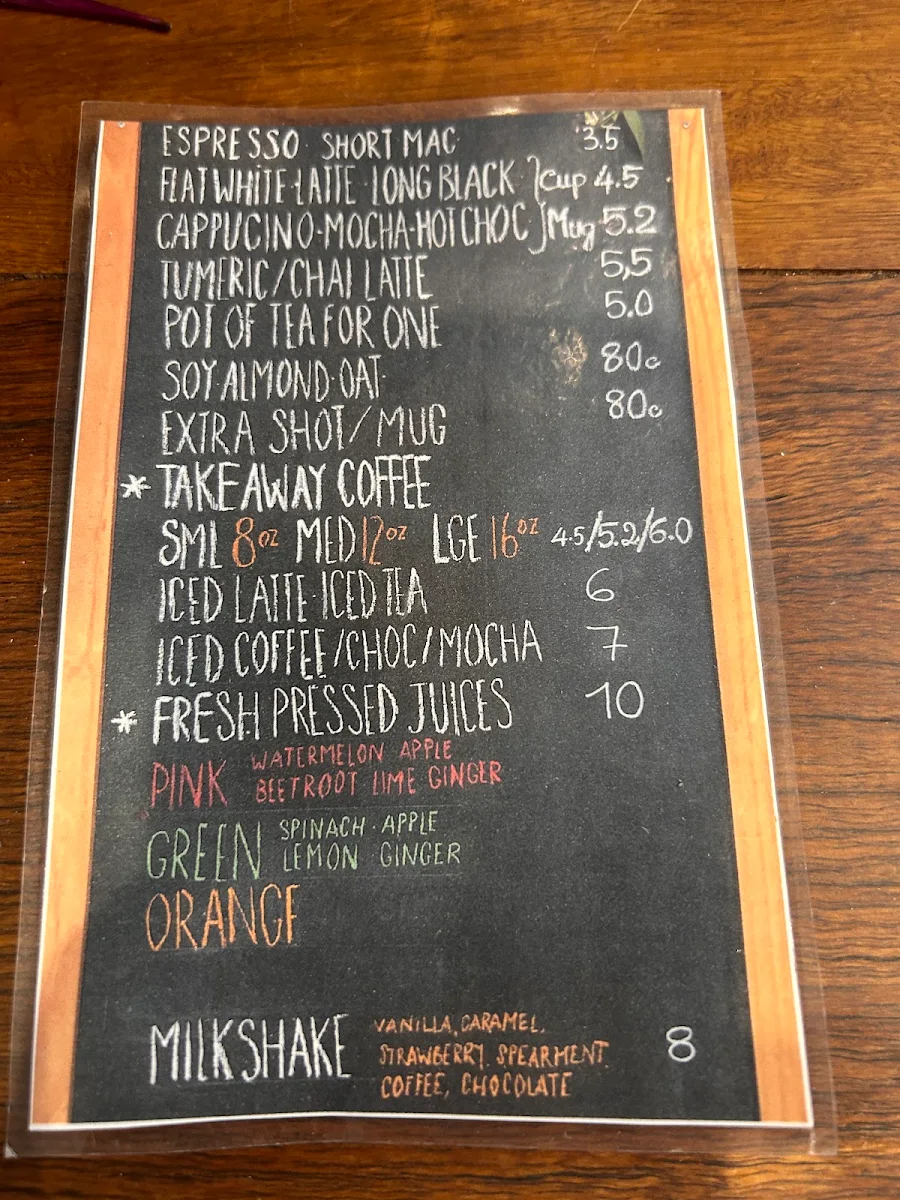 ESPRESSO · SHORT MAC· 3.5
FLAT WHITE·LATTE·LONG BLACK } Cup 4.5
CAPPUCINO·MOCHA·HOT CHOC } Mug 5.2
TUMERIC/CHAI LATTE 5,5
POT OF TEA FOR ONE 5.0
SOY·ALMOND·OAT· 80c
EXTRA SHOT/MUG 80c
* TAKEAWAY COFFEE
SML 8oz MED 12oz LGE 16oz 4.5/5.2/6.0
ICED LATTE·ICED TEA 6
ICED COFFEE/CHOC/MOCHA 7
* FRESH PRESSED JUICES 10
PINK WATERMELON APPLE
BEETROOT LIME GINGER
GREEN SPINACH · APPLE
LEMON GINGER
ORANGE
MILKSHAKE VANILLA, CARAMEL,
STRAWBERRY, SPEARMENT 8
COFFEE, CHOCOLATE